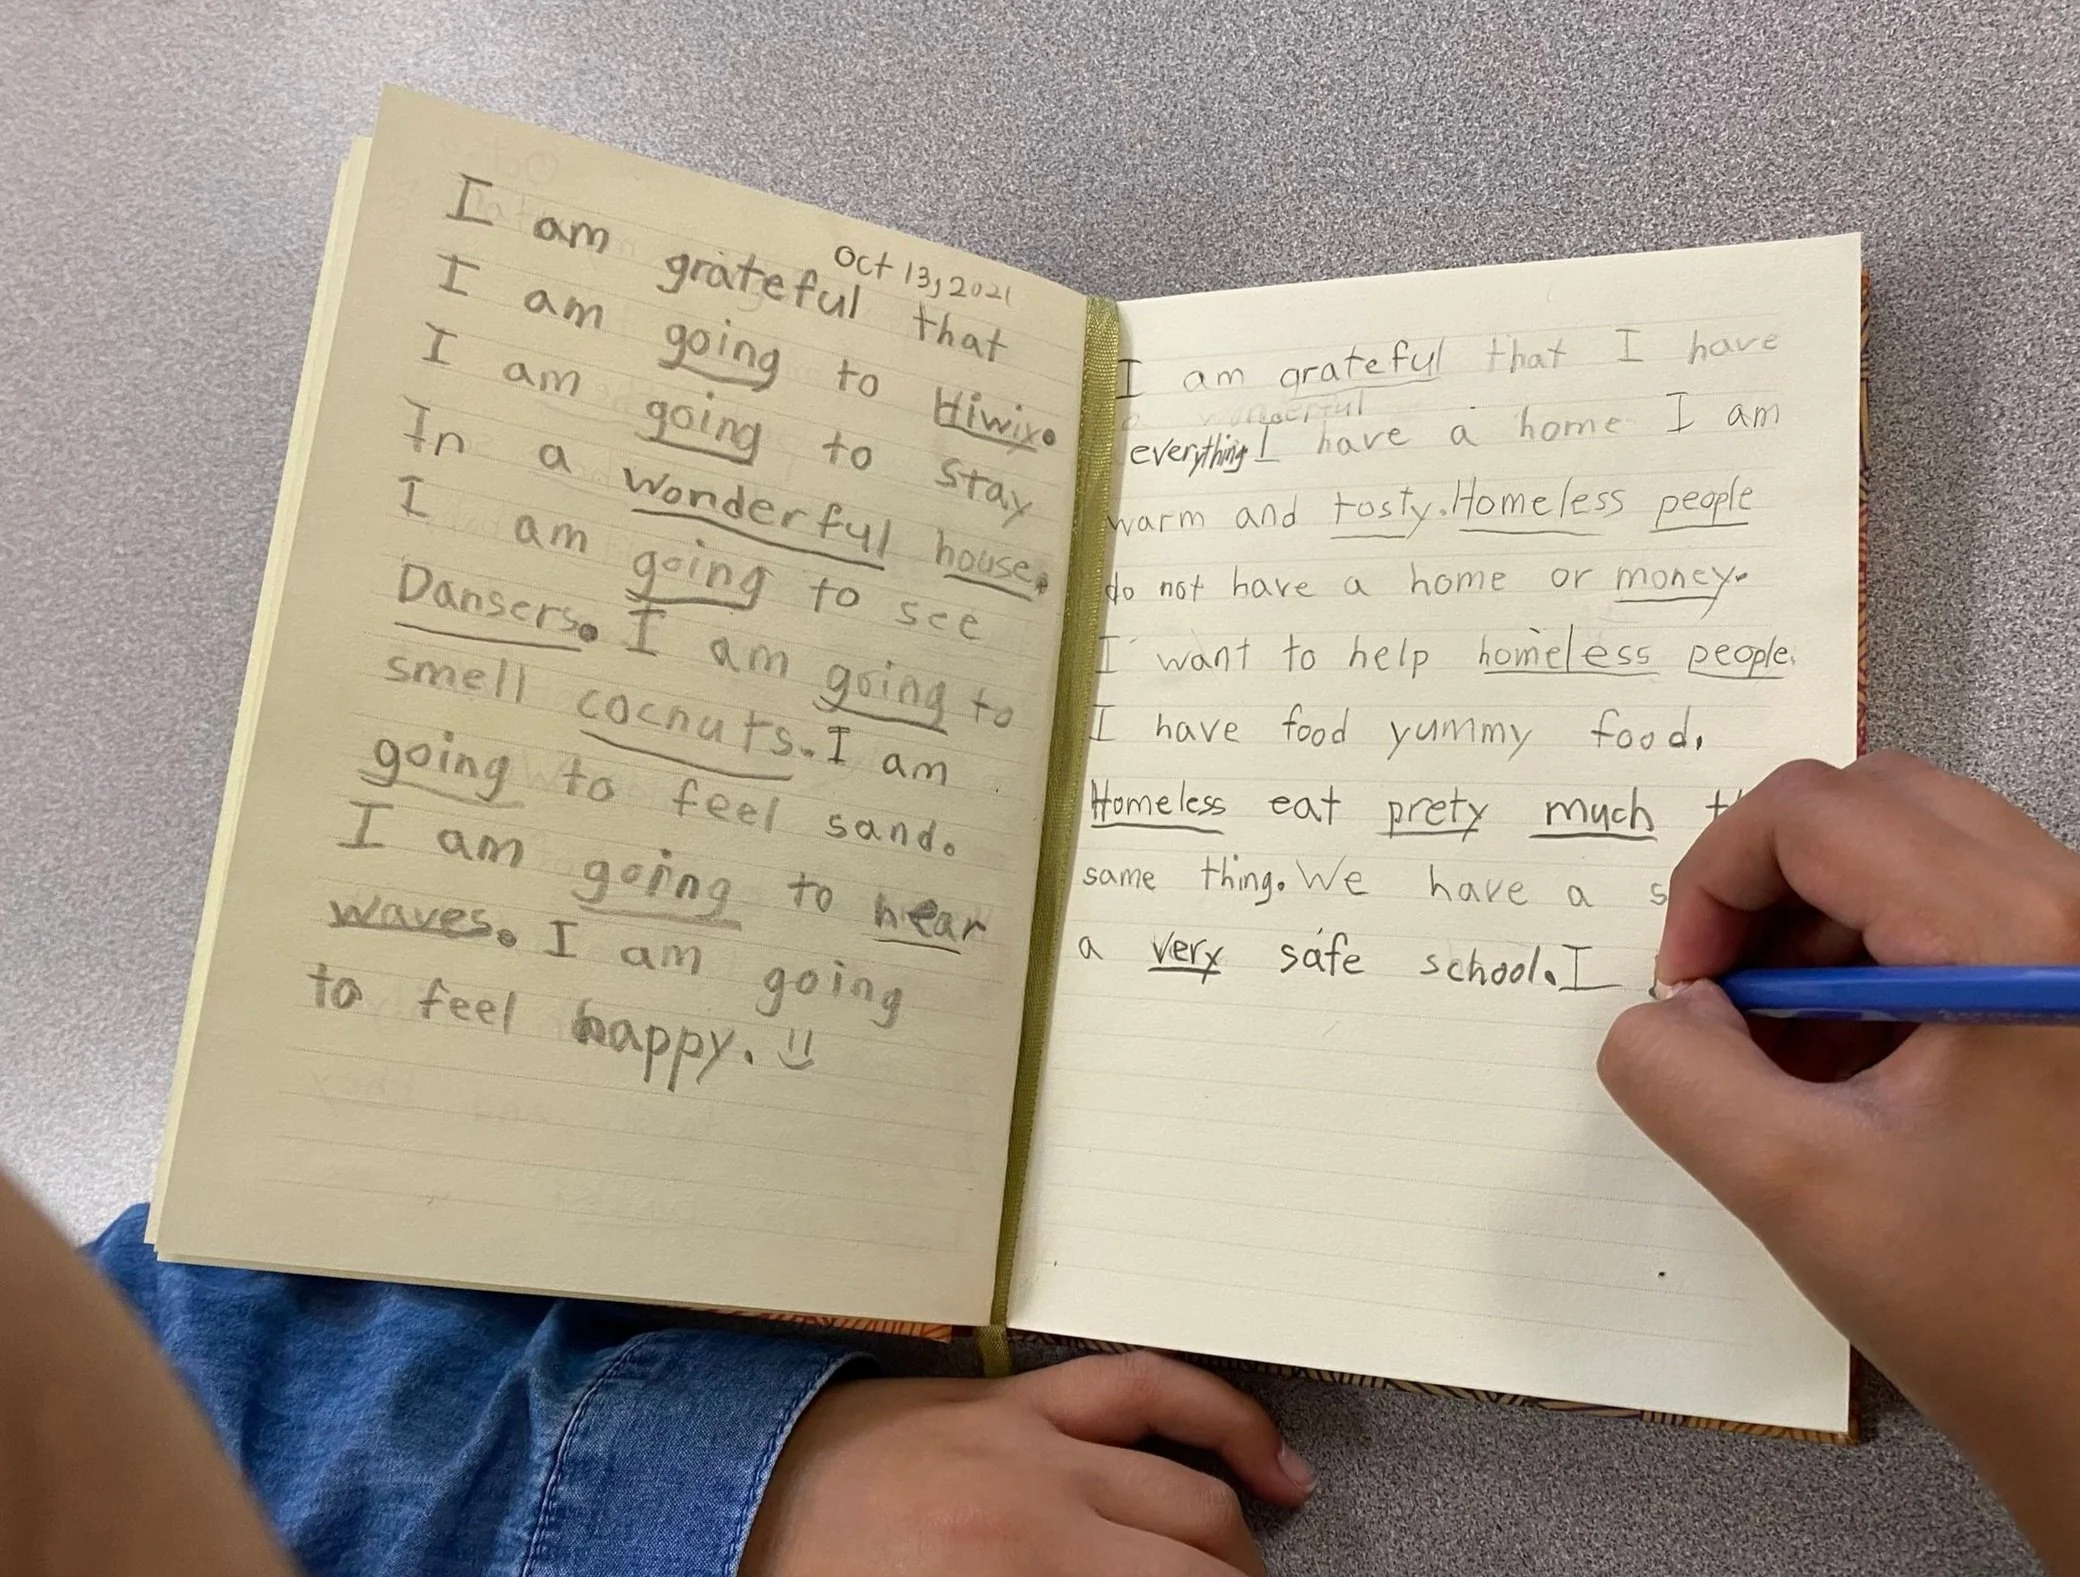 Oct 13, 2021
I am grateful that
I am going to Hiwix.
I am going to stay
In a wonderful house.
I am going to see
Dansers. I am going to
smell cocnuts. I am
going to feel sand.
I am going to hear
waves. I am going
to feel happy.
I am grateful that I have
wonderful
everything I have a home I am
warm and tosty. Homeless people
do not have a home or money.
I want to help homeless people.
I have food yummy food.
Homeless eat prety much
same thing. We have a
a very safe school. I